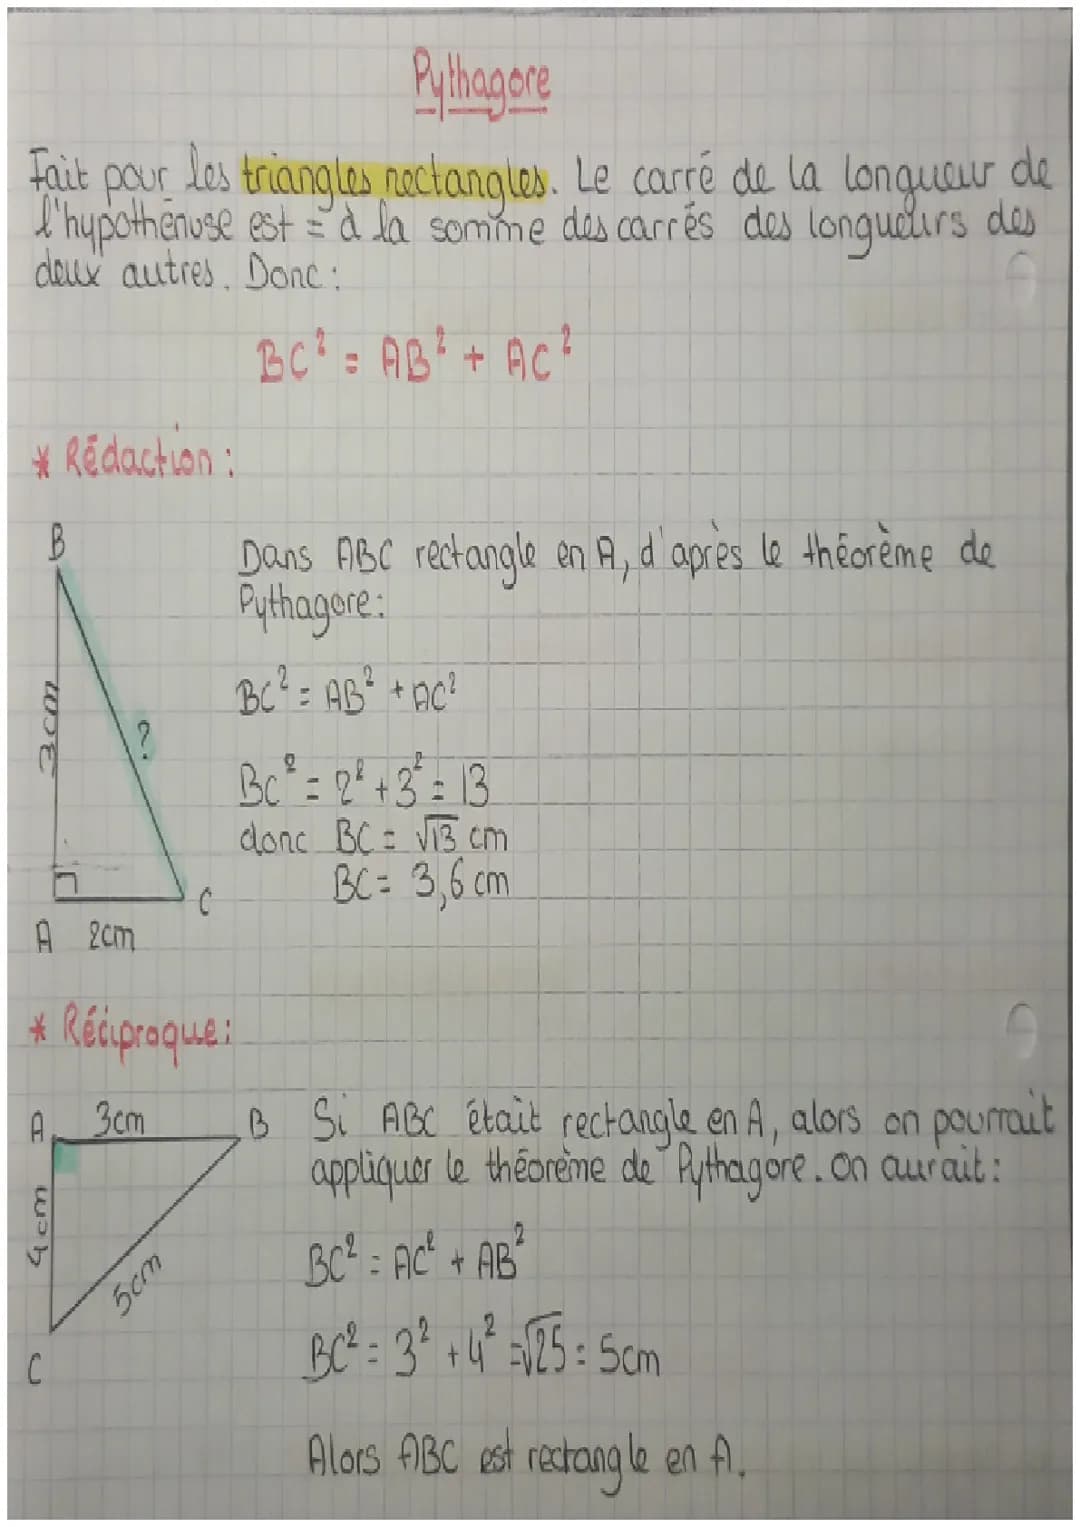 Pythagore
Fait pour les triangles rectangles. Le carré de la longueur de
l'hypothénuse est = à la somme des carrés des longueurs des
deux autres. Donc :
BC² = AB² + AC²
* Rédaction :
B
Dans ABC rectangle en A, d'après le théorème de
Pythagore :
3cm
?
BC² = AB² + AC²
BC² = 2² + 3² = 13
donc BC = √13 cm
BC = 3,6 cm
C
A 2cm
* Réciproque :
A 3cm B
Si ABC était rectangle en A, alors on pourrait
appliquer le théorème de Pythagore. On aurait :
4cm
5cm
C
BC² = AC² + AB²
BC² = 3² + 4² = √25 = 5cm
Alors ABC est rectangle en A.